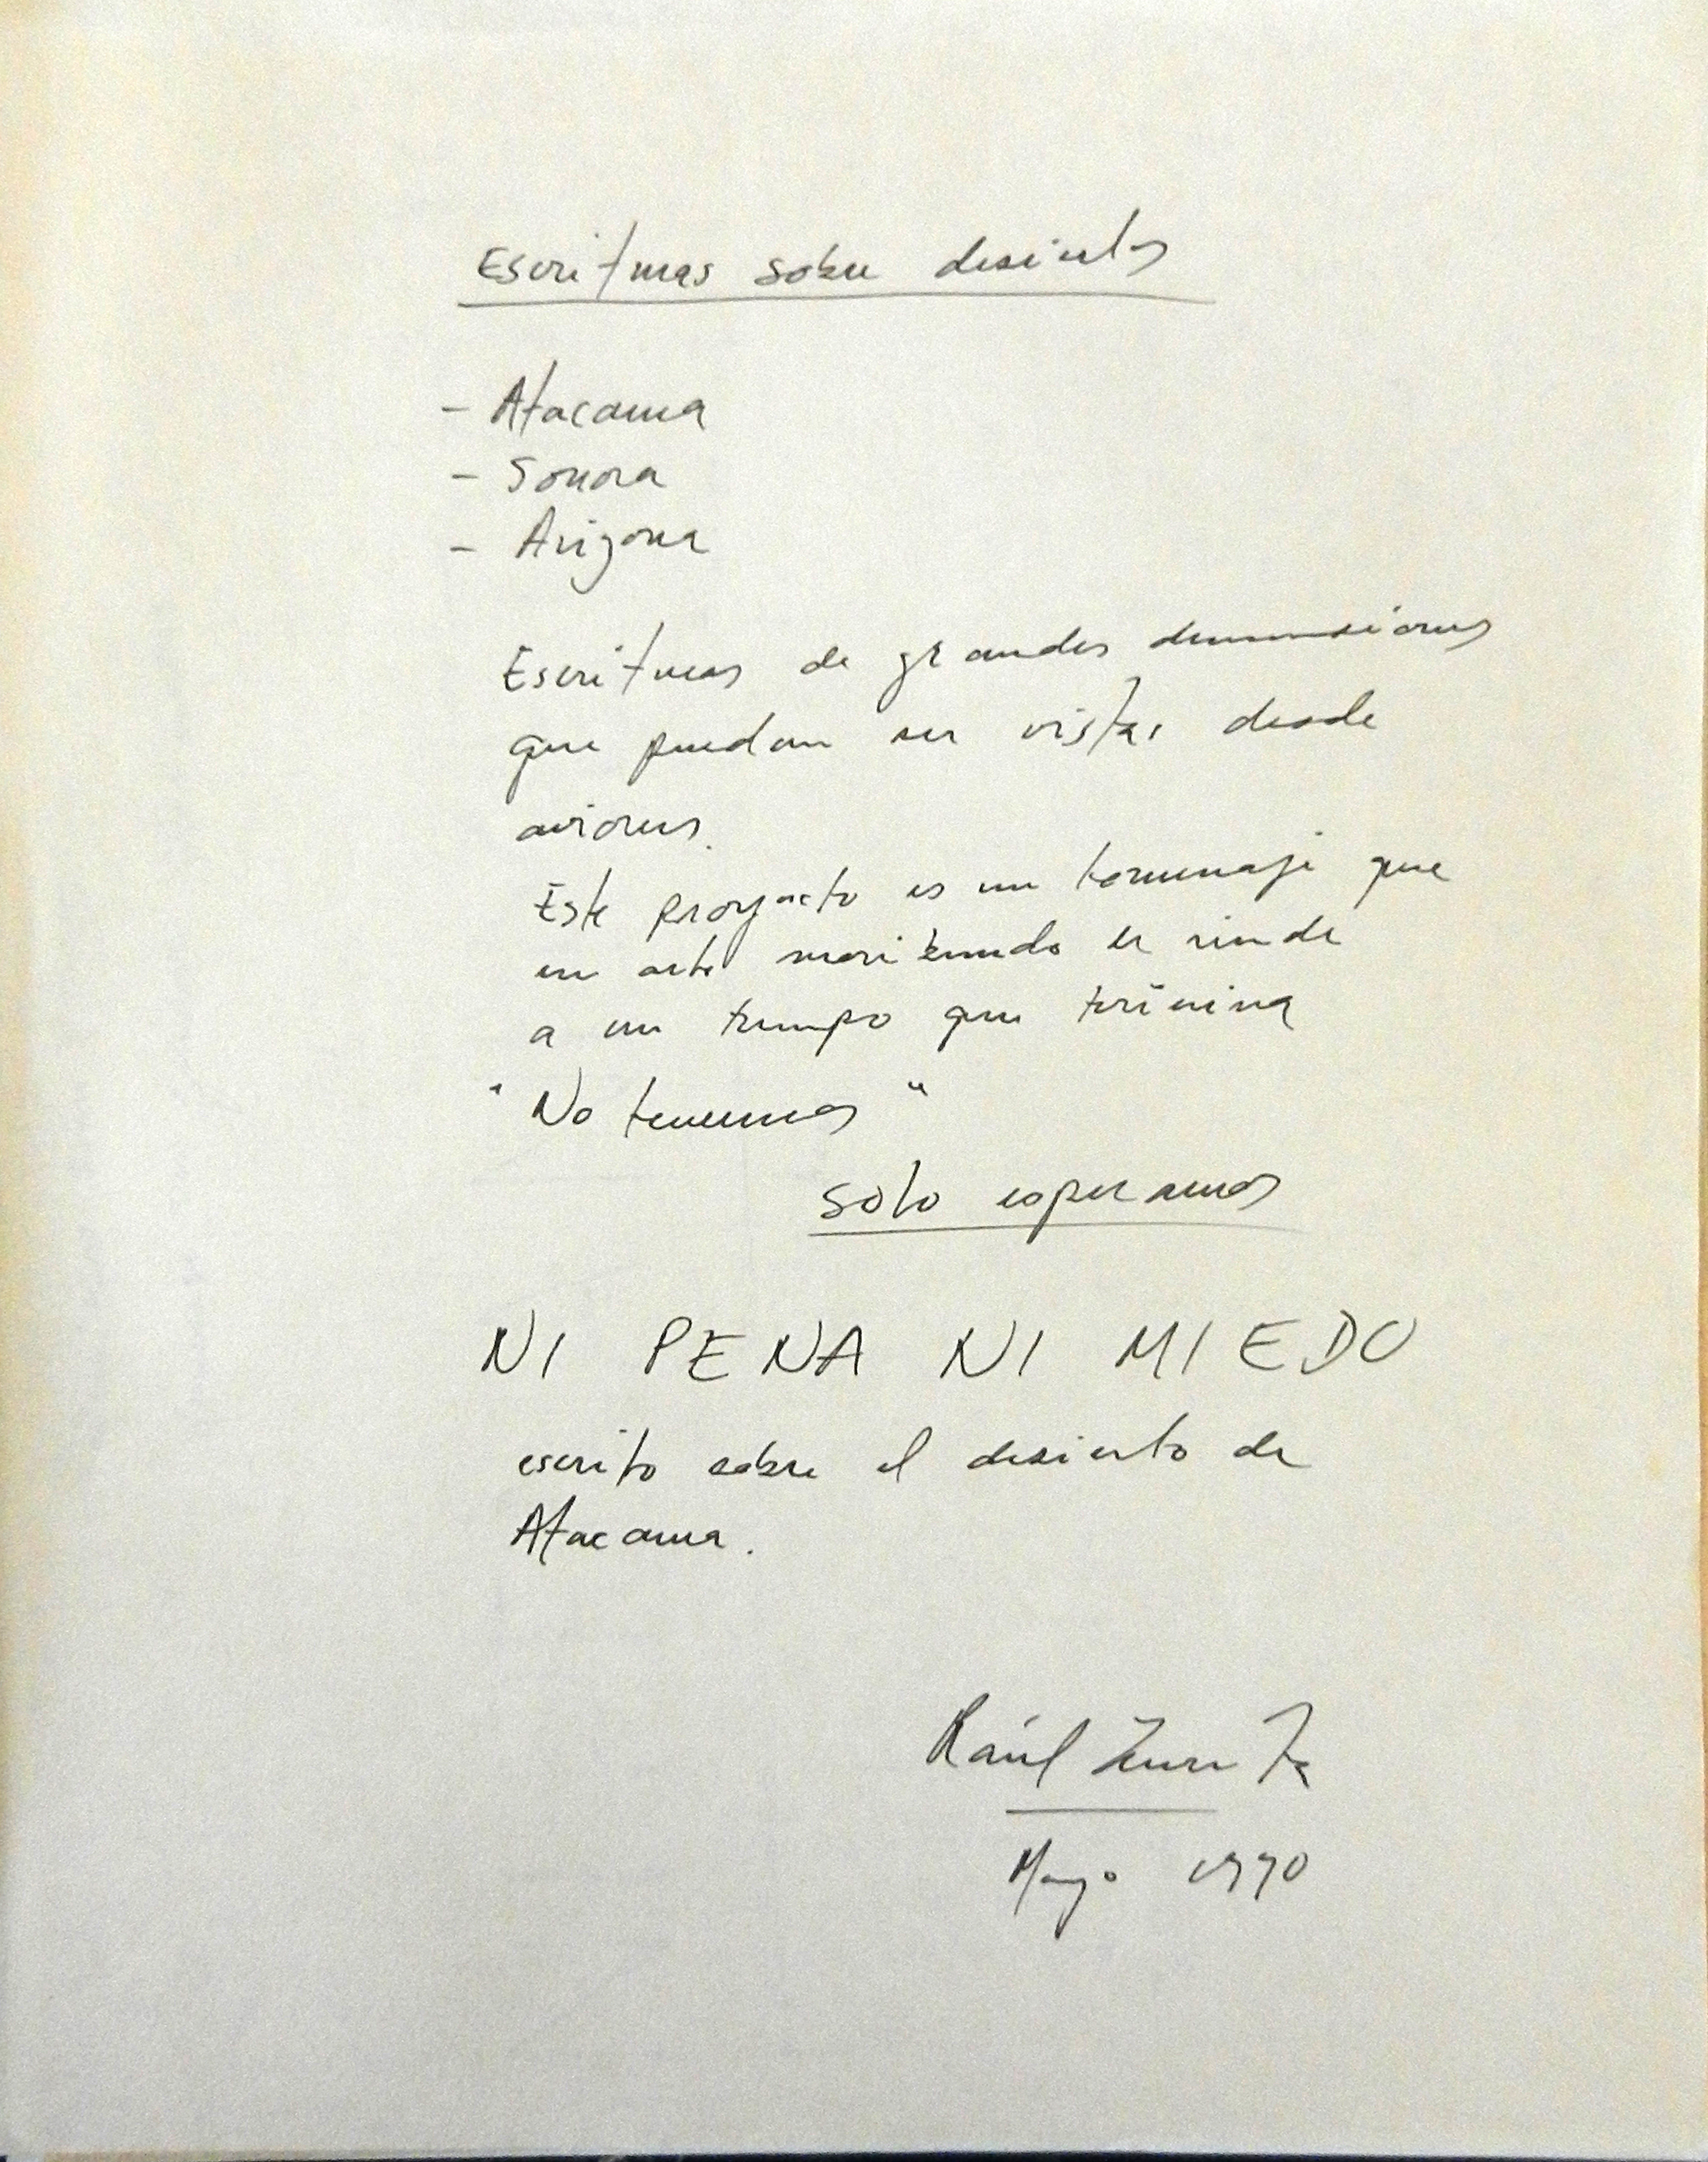 Escrituras sobre desiertos
- Atacama
- Sonora
- Arizona
Escrituras de grandes dimensiones
que puedan ser vistas desde
aviones.
Este proyecto es un homenaje que
un arte moribundo le rinde
a un tiempo que termina
"No tenemos"
solo esperamos
NI PENA NI MIEDO
escrito sobre el desierto de
Atacama.
Raúl Zurita
Mayo 1990